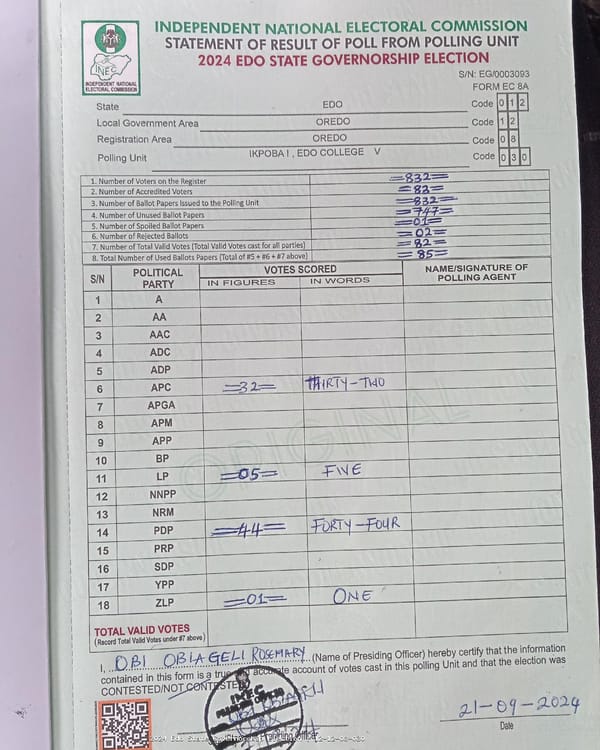 INDEPENDENT NATIONAL ELECTORAL COMMISSION
STATEMENT OF RESULT OF POLL FROM POLLING UNIT
2024 EDO STATE GOVERNORSHIP ELECTION
INEC
INDEPENDENT NATIONAL
ELECTORAL COMMISSION
S/N: EG/0003093
FORM EC 8A
State EDO Code 0 1 2
Local Government Area OREDO Code 1 2
Registration Area OREDO Code 0 8
Polling Unit IKPOBA I , EDO COLLEGE V Code 0 3 0
1. Number of Voters on the Register =832=
2. Number of Accredited Voters =83=
3. Number of Ballot Papers Issued to the Polling Unit =832=
4. Number of Unused Ballot Papers =747=
5. Number of Spoiled Ballot Papers =01=
6. Number of Rejected Ballots =02=
7. Number of Total Valid Votes (Total Valid Votes cast for all parties) =82=
8. Total Number of Used Ballots Papers (Total of #5 + #6 + #7 above) =85=
S/N POLITICAL PARTY VOTES SCORED NAME/SIGNATURE OF POLLING AGENT
IN FIGURES IN WORDS
1 A
2 AA
3 AAC
4 ADC
5 ADP
6 APC =32= THIRTY-TWO
7 APGA
8 APM
9 APP
10 BP
11 LP =05= FIVE
12 NNPP
13 NRM
14 PDP =44= FORTY-FOUR
15 PRP
16 SDP
17 YPP
18 ZLP =01= ONE
ORIGINAL
TOTAL VALID VOTES
(Record Total Valid Votes under #7 above)
I, OBI OBIAGELI ROSEMARY (Name of Presiding Officer) hereby certify that the information
contained in this form is a true and accurate account of votes cast in this polling Unit and that the election was
CONTESTED/NOT CONTESTED
INEC
21-09-2024
Date